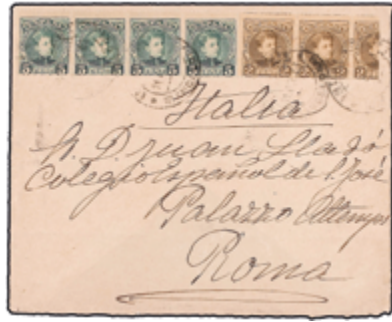 5 5 5 5
Italia
S. D. Juan Lladó
Colegio Español de S. José
Palazzo Altemps
Roma